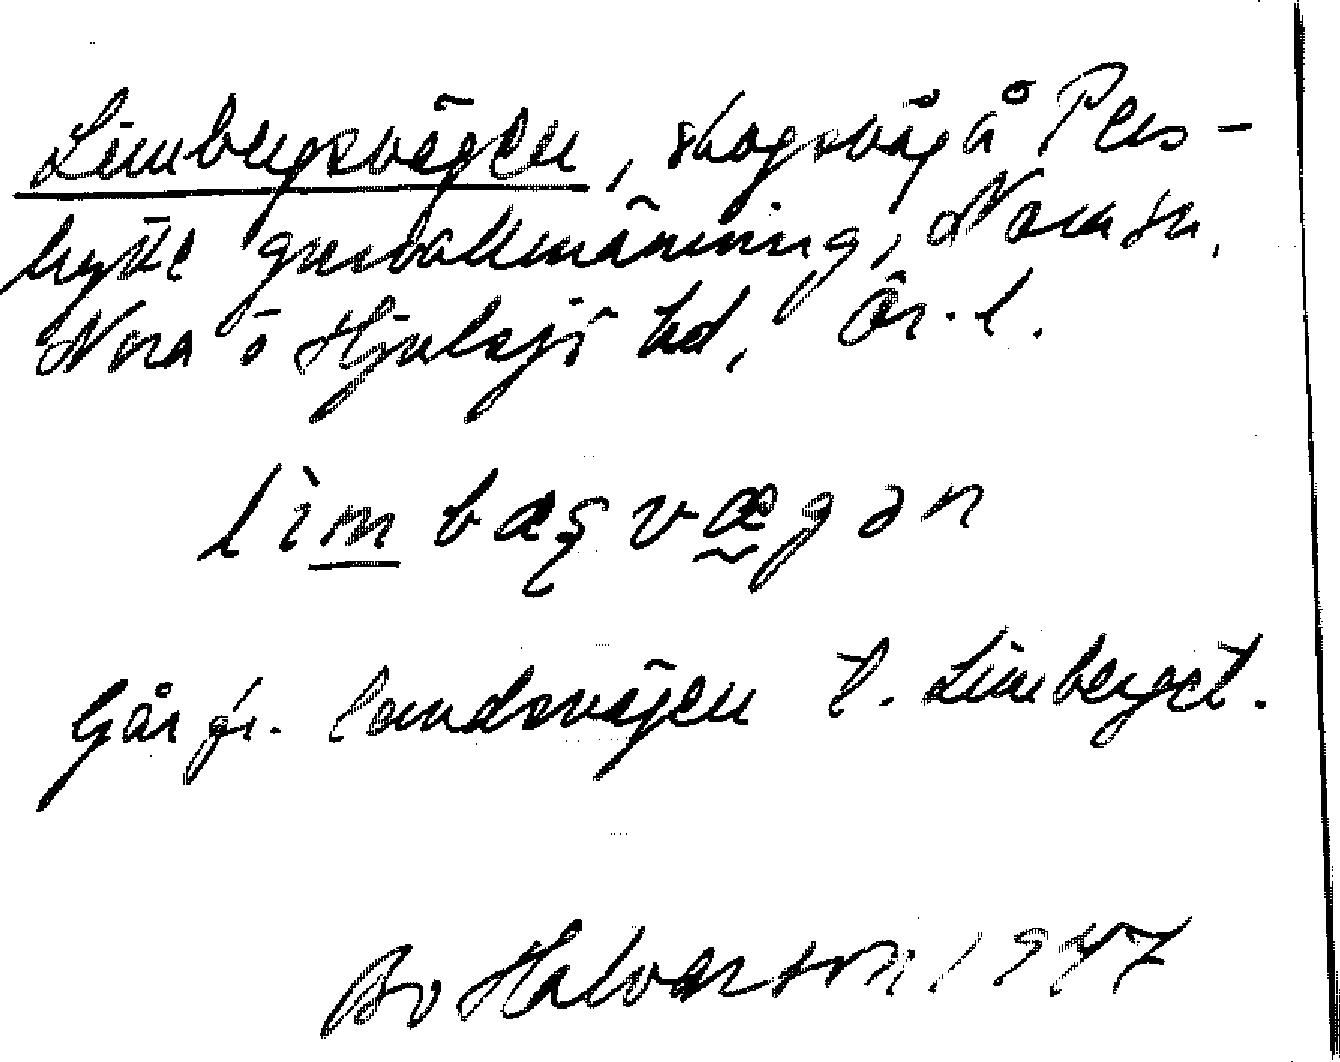 Limbergsvägen, skogsväg å Pers-
hytte gruvallmänning, Nora sn,
Nora o Hjulsjö hd, Ör. l.
lìmbæʂvægən
Går fr. landsvägen t. Limberget.
Bo Halvarson 1947